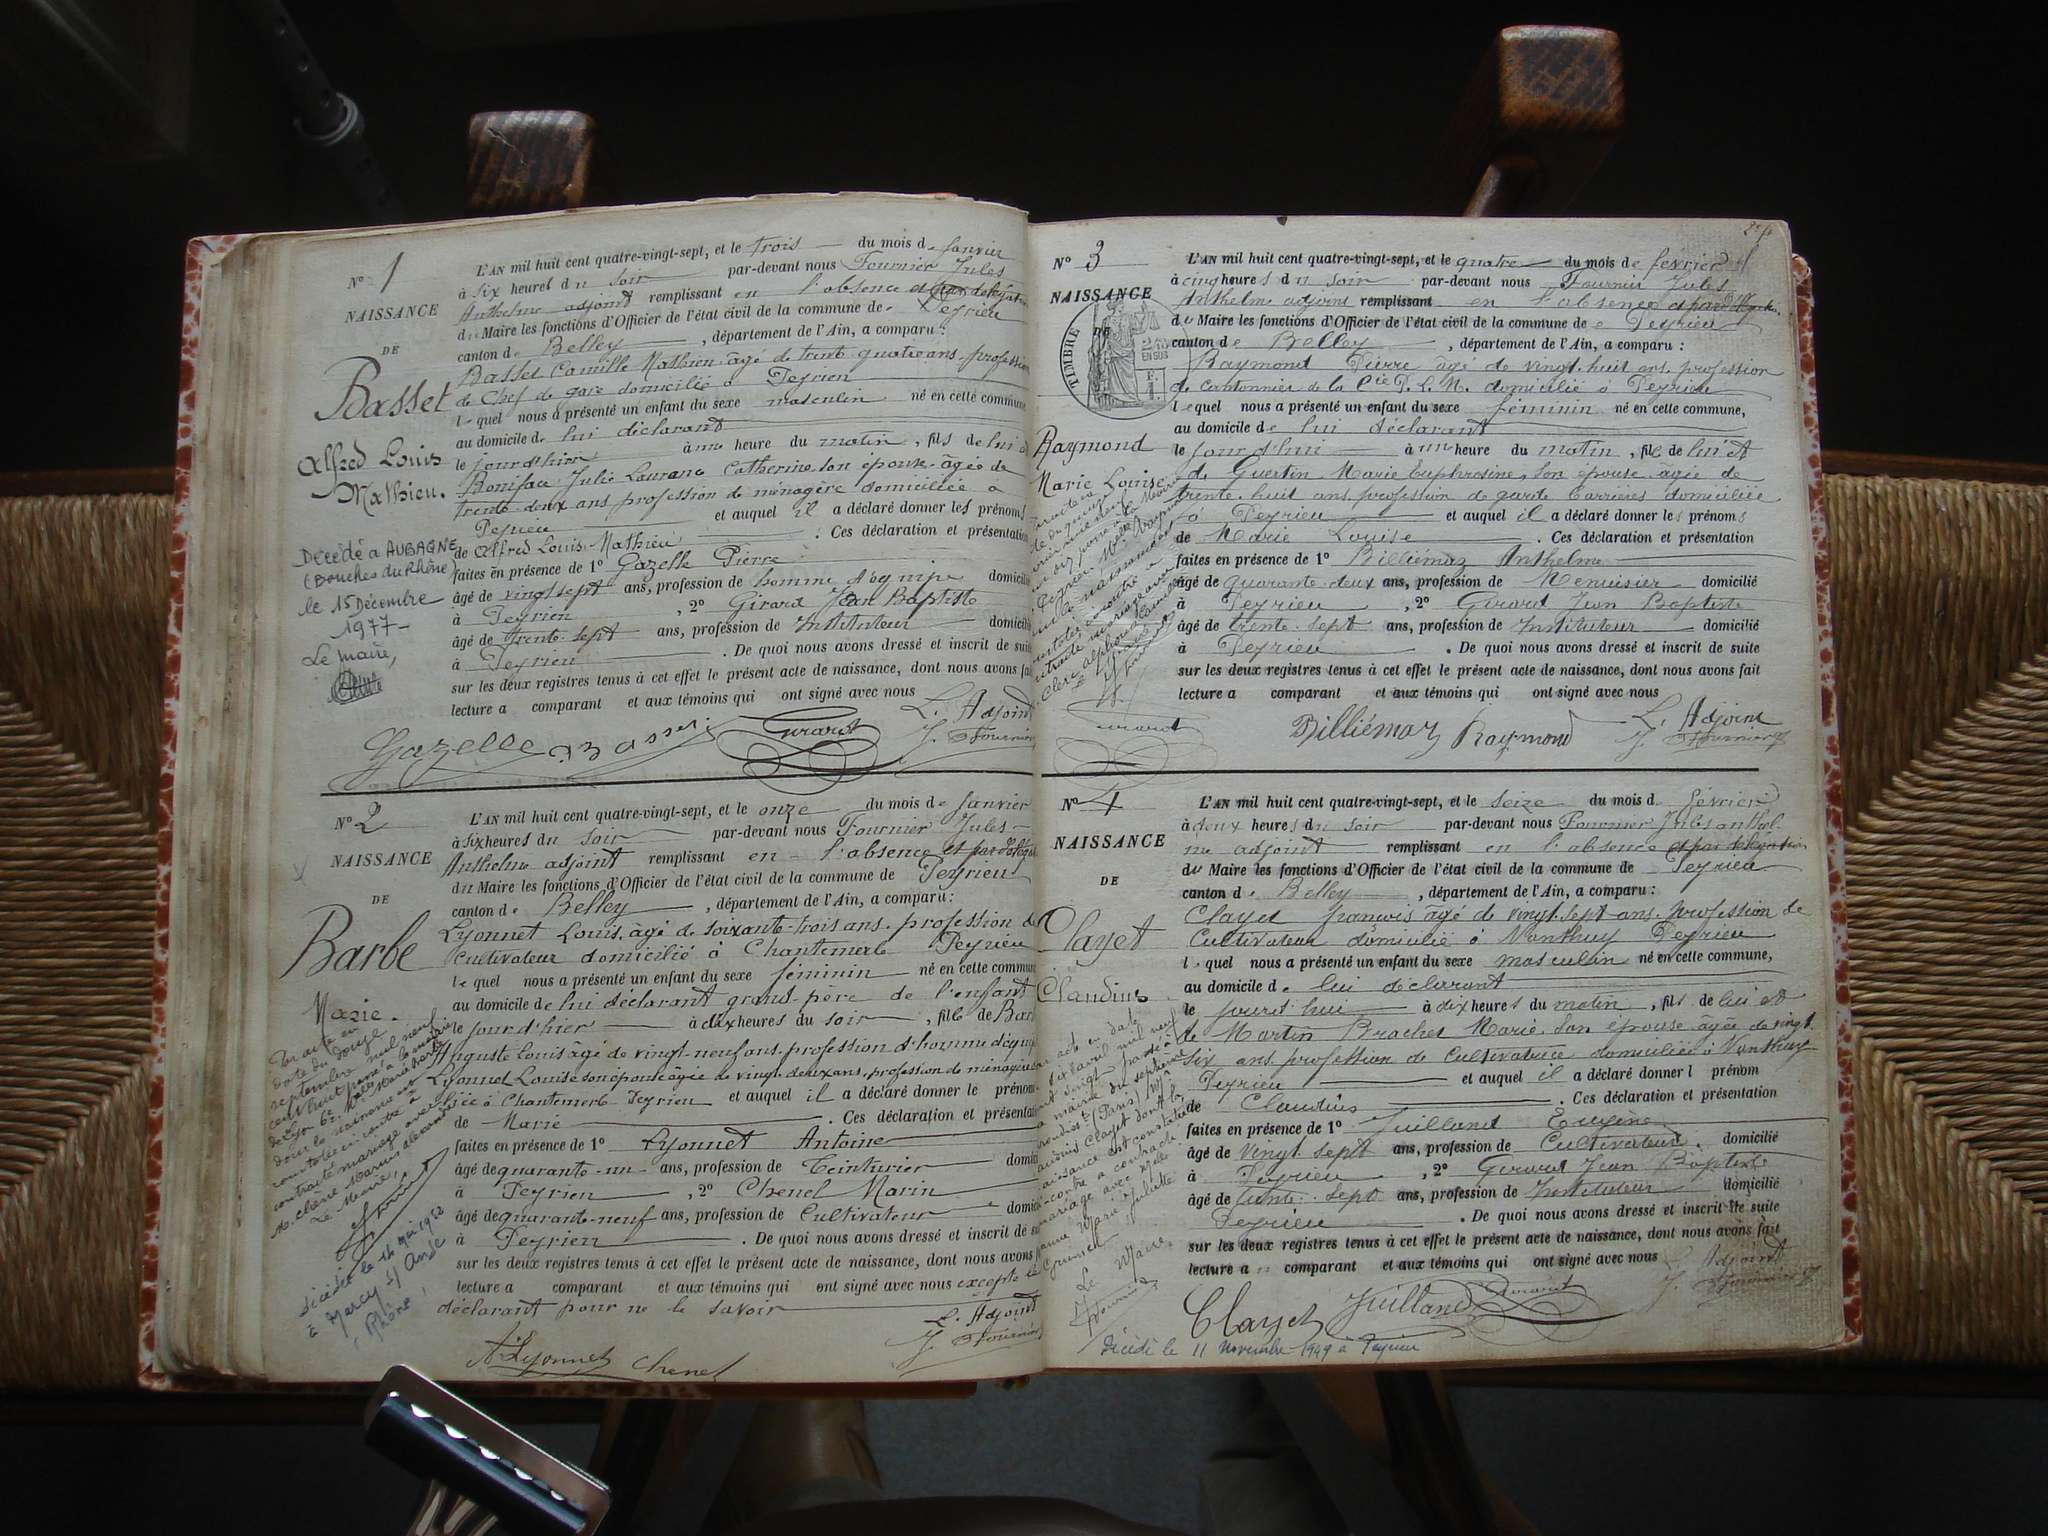 N° 1
NAISSANCE
DE
Basset
Alfred Louis
Mathieu.
Décédé à AUBAGNE
(Bouches du Rhône)
le 15 Décembre
1977
Le maire,
L'AN mil huit cent quatre-vingt-sept, et le trois du mois de Janvier
à six heures du soir par-devant nous Fournier Jules
Anthelme adjoint remplissant en l'absence et par délégation
du Maire les fonctions d'Officier de l'état civil de la commune de Peyrieu
canton de Belley, département de l'Ain, a comparu :
Basset Camille Mathieu âgé de trente quatre ans, profession
de Chef de gare domicilié à Peyrieu
lequel nous a présenté un enfant du sexe masculin né en cette commune
au domicile de lui déclarant
le jour d'hier à une heure du matin, fils de lui et
Boniface Julie Laurance Catherine son épouse âgée de
trente-deux ans profession de ménagère domiciliée à
Peyrieu et auquel il a déclaré donner les prénoms
de Alfred Louis Mathieu. Ces déclaration et présentation
faites en présence de 1° Gazelle Pierre
âgé de vingt sept ans, profession de homme d'équipe domicilié
à Peyrieu, 2° Girard Jean Baptiste
âgé de trente-sept ans, profession de Instituteur domicilié
à Peyrieu. De quoi nous avons dressé et inscrit de suite
sur les deux registres tenus à cet effet le présent acte de naissance, dont nous avons fait
lecture a comparant et aux témoins qui ont signé avec nous
L. Adjoint
Gazelle Basset Girard J. Fournier
N° 2
NAISSANCE
DE
Barbe
Marie.
Par acte en
date du douze
septembre mil neuf
cent huit passé à la mairie
de Lyon 6e
dont la naissance est
constatée ci-contre a
contracté mariage avec
Le Maire,
décédée le 14 mai 1962
à Marcy s/ Anse
(Rhône)
L'AN mil huit cent quatre-vingt-sept, et le onze du mois de Janvier
à six heures du soir par-devant nous Fournier Jules
Anthelme adjoint remplissant en l'absence et par délégation
du Maire les fonctions d'Officier de l'état civil de la commune de Peyrieu
canton de Belley, département de l'Ain, a comparu :
Lyonnet Louis, âgé de soixante-trois ans, profession de
cultivateur domicilié à Chantemerle Peyrieu
lequel nous a présenté un enfant du sexe féminin né en cette commune
au domicile de lui déclarant grand-père de l'enfant
le jour d'hier à dix heures du soir, fille de Barbe
Auguste Louis âgé de vingt-neuf ans, profession d'homme d'équipe
Lyonnet Louise son épouse âgée de vingt-deux ans, profession de ménagère
à Chantemerle Peyrieu et auquel il a déclaré donner le prénom
de Marie. Ces déclaration et présentation
faites en présence de 1° Lyonnet Antoine
âgé de quarante-un ans, profession de Teinturier domicilié
à Peyrieu, 2° Chenel Marin
âgé de quarante-neuf ans, profession de Cultivateur domicilié
à Peyrieu. De quoi nous avons dressé et inscrit de suite
sur les deux registres tenus à cet effet le présent acte de naissance, dont nous avons
lecture a comparant et aux témoins qui ont signé avec nous excepté le
déclarant pour ne le savoir
L. Adjoint
A. Lyonnet Chenel J. Fournier
N° 3
NAISSANCE
DE
TIMBRE
EN SUS
Raymond
Marie Louise
L'AN mil huit cent quatre-vingt-sept, et le quatre du mois de février
à cinq heures du soir par-devant nous Fournier Jules
Anthelme adjoint remplissant en l'absence et par délégation
du Maire les fonctions d'Officier de l'état civil de la commune de Peyrieu
canton de Belley, département de l'Ain, a comparu :
Raymond Pierre âgé de vingt-huit ans, profession
de cantonnier de la Cie P. L. M. domicilié à Peyrieu
lequel nous a présenté un enfant du sexe féminin né en cette commune,
au domicile de lui déclarant
le jour d'hui à une heure du matin, fille de lui et
de Guertin Marie Euphrosine, son épouse âgée de
trente-huit ans, profession de garde barrières domiciliée
à Peyrieu et auquel il a déclaré donner les prénoms
de Marie Louise. Ces déclaration et présentation
faites en présence de 1° Billiémaz Anthelme
âgé de quarante-deux ans, profession de Menuisier domicilié
à Peyrieu, 2° Girard Jean Baptiste
âgé de trente-sept ans, profession de Instituteur domicilié
à Peyrieu. De quoi nous avons dressé et inscrit de suite
sur les deux registres tenus à cet effet le présent acte de naissance, dont nous avons fait
lecture a comparant et aux témoins qui ont signé avec nous
L. Adjoint
Girard Billiémaz Raymond J. Fournier
N° 4
NAISSANCE
DE
Clayet
Claudius
Le Maire
L'AN mil huit cent quatre-vingt-sept, et le seize du mois de février
à deux heures du soir par-devant nous Fournier Jules Anthel-
me adjoint remplissant en l'absence et par délégation
du Maire les fonctions d'Officier de l'état civil de la commune de Peyrieu
canton de Belley, département de l'Ain, a comparu :
Clayet François âgé de vingt-sept ans, profession de
Cultivateur domicilié à Peyrieu
lequel nous a présenté un enfant du sexe masculin né en cette commune,
au domicile de lui déclarant
le jourd'hui à dix heures du matin, fils de lui et
de Martin Brachet Marie son épouse âgée de vingt
six ans, profession de Cultivatrice domiciliée à
Peyrieu et auquel il a déclaré donner l prénom
de Claudius. Ces déclaration et présentation
faites en présence de 1° Juilland Eugène
âgé de vingt sept ans, profession de Cultivateur domicilié
à Peyrieu, 2° Girard Jean Baptiste
âgé de trente-sept ans, profession de Instituteur domicilié
Peyrieu. De quoi nous avons dressé et inscrit de suite
sur les deux registres tenus à cet effet le présent acte de naissance, dont nous avons fait
lecture a comparant et aux témoins qui ont signé avec nous
L. Adjoint
Clayet Juilland Girard J. Fournier
Décédé le 11 Novembre 1949 à Peyrieu